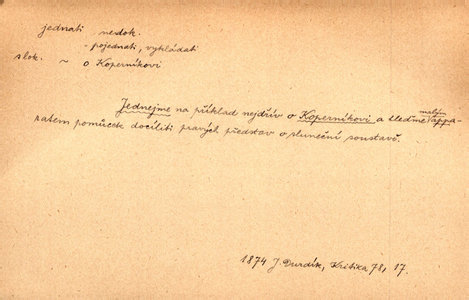 jednati nedok.
- pojednati, vykládati
slok. ~ o Koperníkovi
Jednejme na příklad nejdřív o Koperníkovi a hleďme malým appa-
rátem pomůcek docíliti pravých představ o sluneční soustavě.
1874 J. Durdík, Kritika 78, 17.